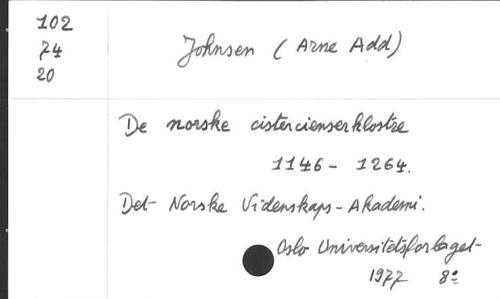 102
74
20
Johnsen (Arne Odd)
De norske cistercienserklostre
1146 - 1264.
Det Norske Videnskaps-Akademi.
Oslo Universitetsforlaget
1977 8º